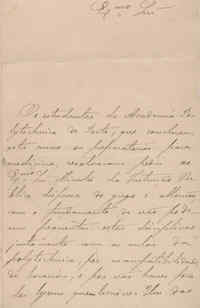 Exmo Snr
Os estudantes da Academia Po-
lytechnica do Porto, que concluiram
este anno os preparatorios para
medicina, resolveram pedir ao
Exmo Snr Ministro da Instrucção Pu-
blica dispensa de grego e allemão
com o fundamento de não pode-
rem frequentar estas disciplinas
juntamente com as aulas da
polytechnica, por incompatibilidade
de horario, e por não haver fóra
do lyceu quem